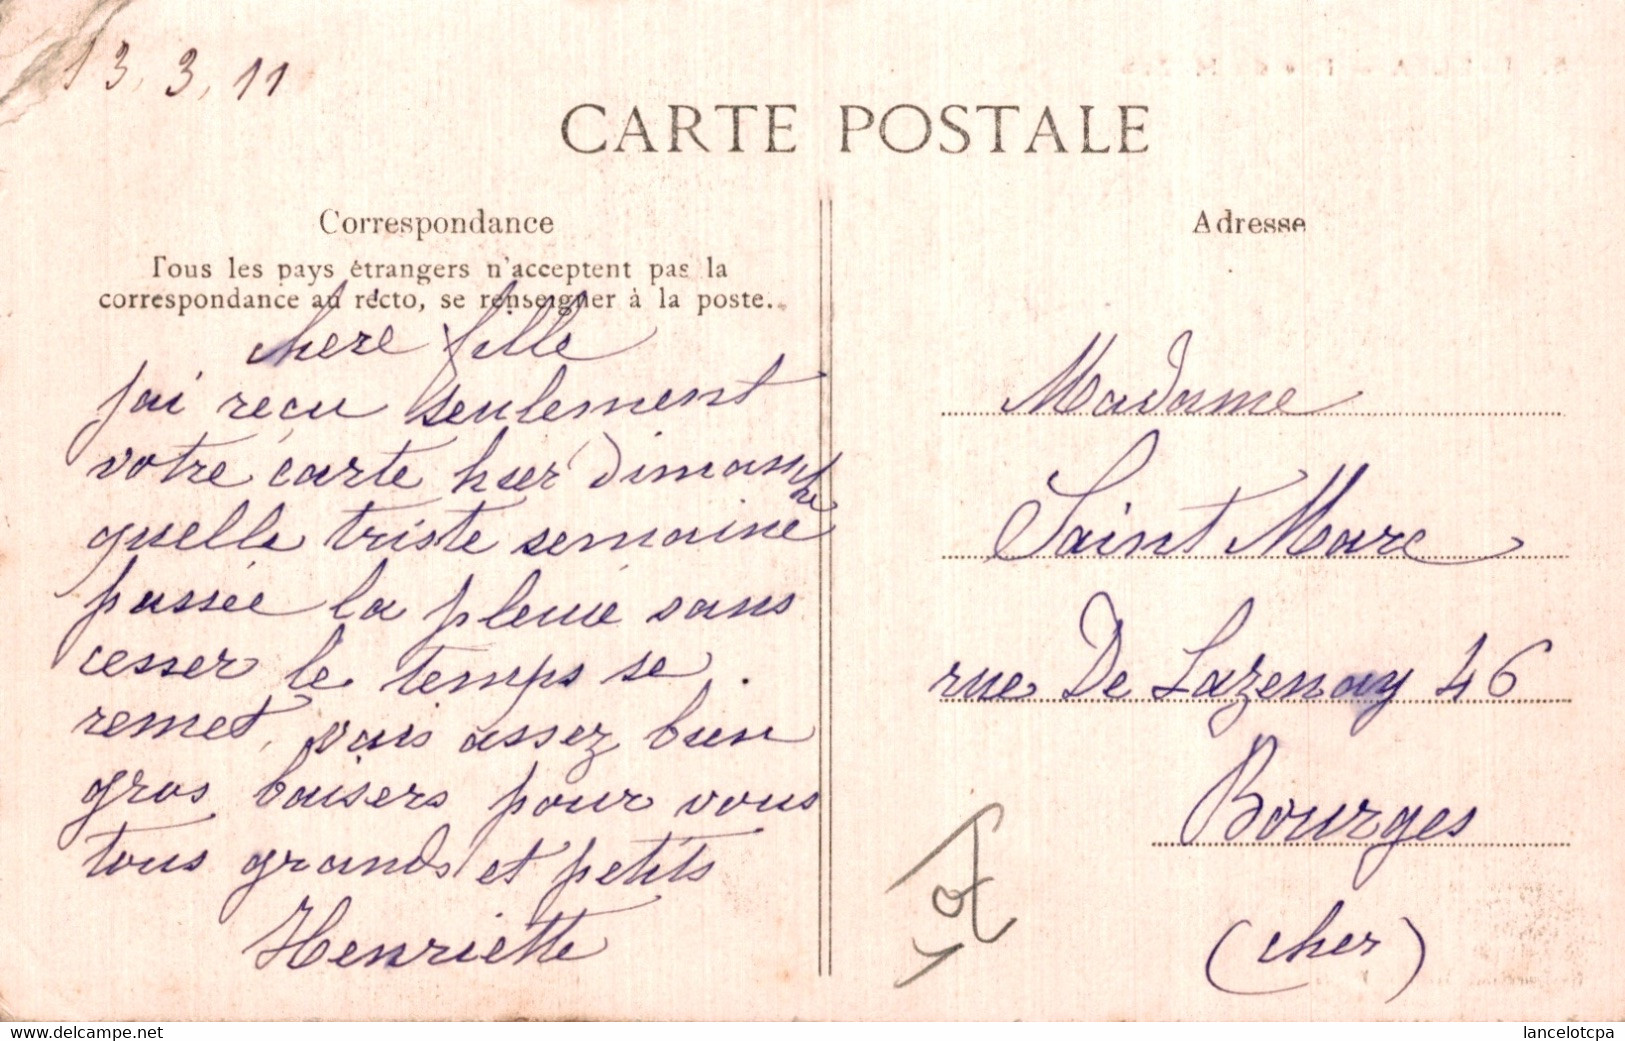 13, 3, 11
CARTE POSTALE
Correspondance
Tous les pays étrangers n'acceptent pas la
correspondance au recto, se renseigner à la poste.
chere fille
jai reçu seulement
votre carte hier Dimanche
quelle triste semaine
passée la pleuie sans
cesser le temps se
remet, vais assez bien
gros baisers pour vous
tous grands et petits
Henriette
Adresse
Madame
Saint Marc
rue De Lazenay 46
Bourges
(cher)
www.delcampe.net
lancelotcpa